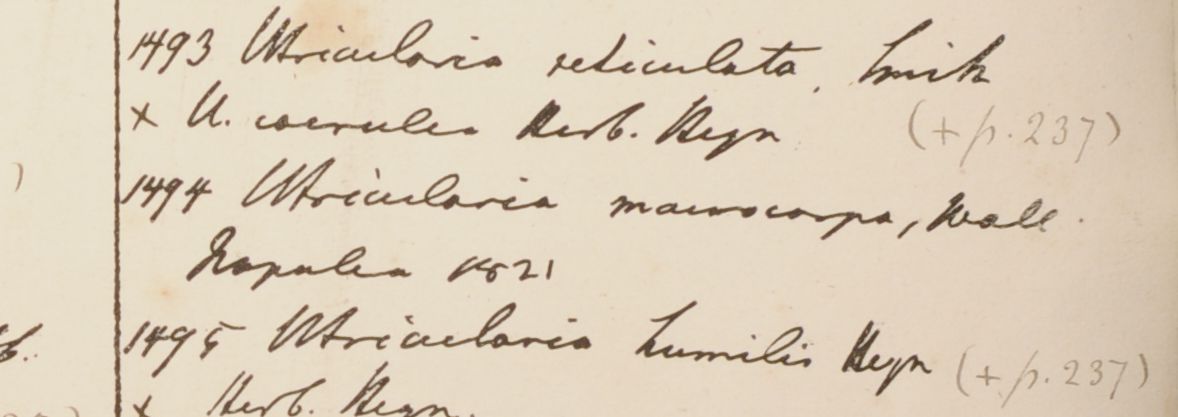 1493 Utricularia reticulata, Smith
+ U. coerulea Herb. Heyn (+ p. 237)
1494 Utricularia macrocarpa, Wall.
Napalea 1821
1495 Utricularia humilis Heyn (+ p. 237)
+ Herb. Heyn.